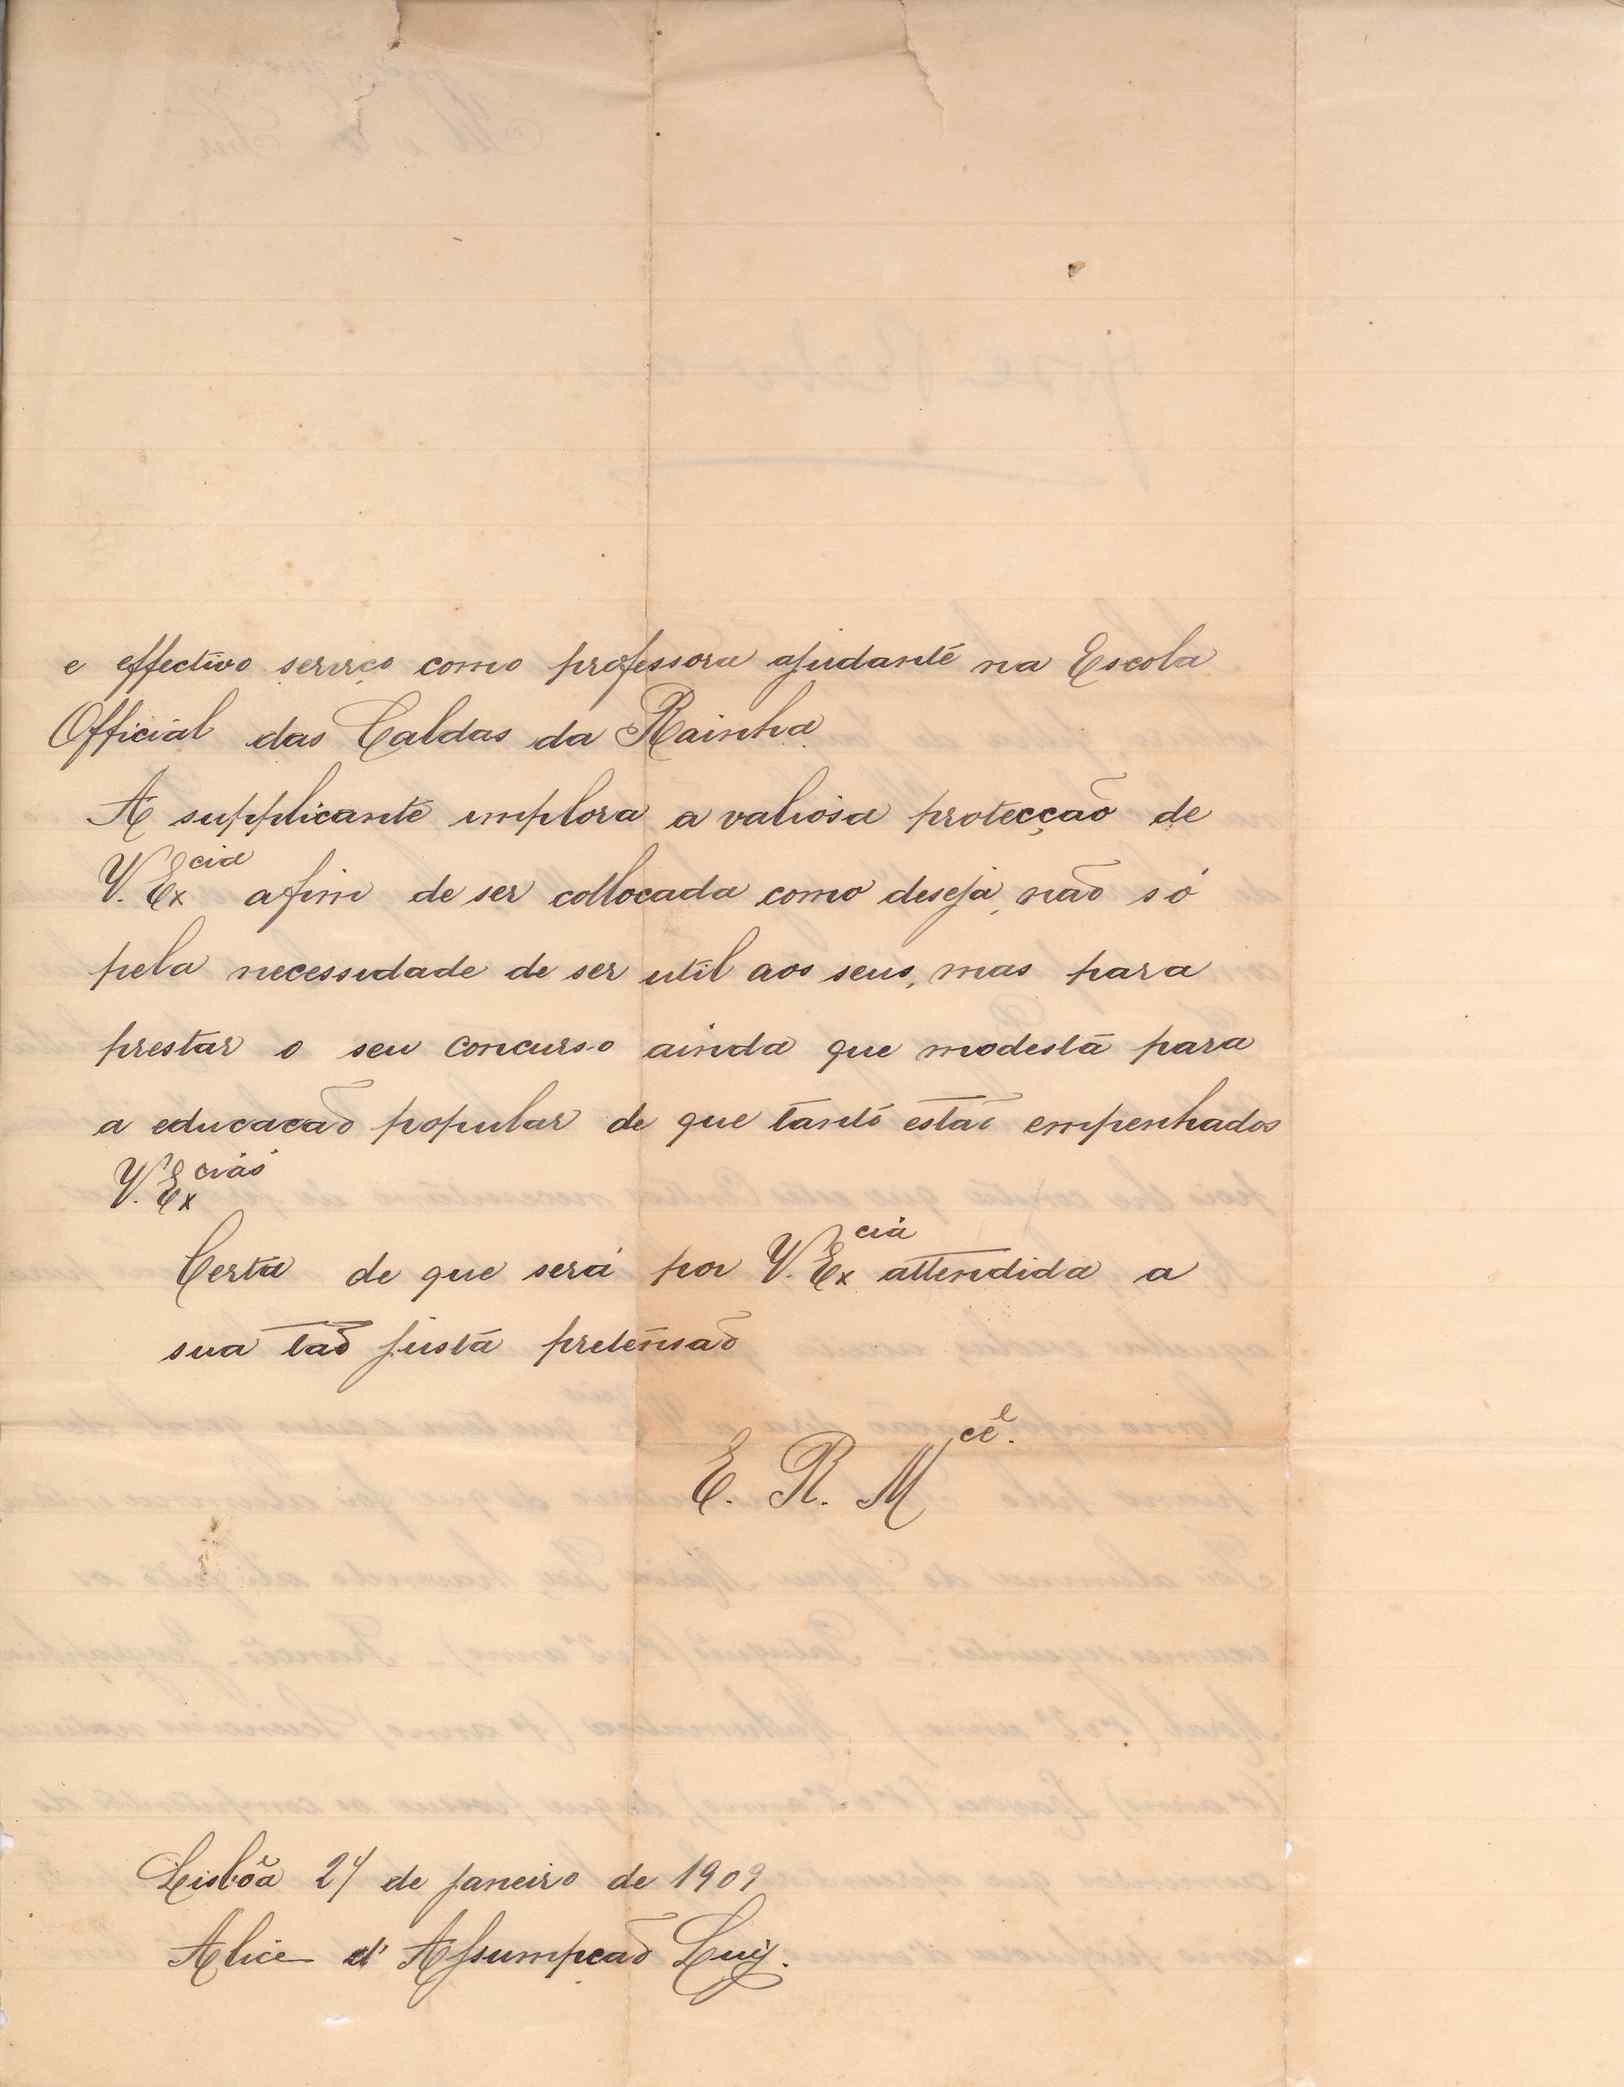 e effectivo serviço como professora ajudante na Escola
Official das Caldas da Rainha
A supplicante implora a valiosa protecção de
V. Ex^cia afim de ser collocada como deseja, não só
pela necessidade de ser util aos seus, mas para
prestar o seu concurso ainda que modesta para
a educacão popular de que tanto estão empenhados
V. Ex^cias
Certa de que será por V. Ex^cia attendida a
sua tão justa pretensão
E. R. M^cê.
Lisbôa 27 de Janeiro de 1909
Alice d'Assumpcão Luiz.